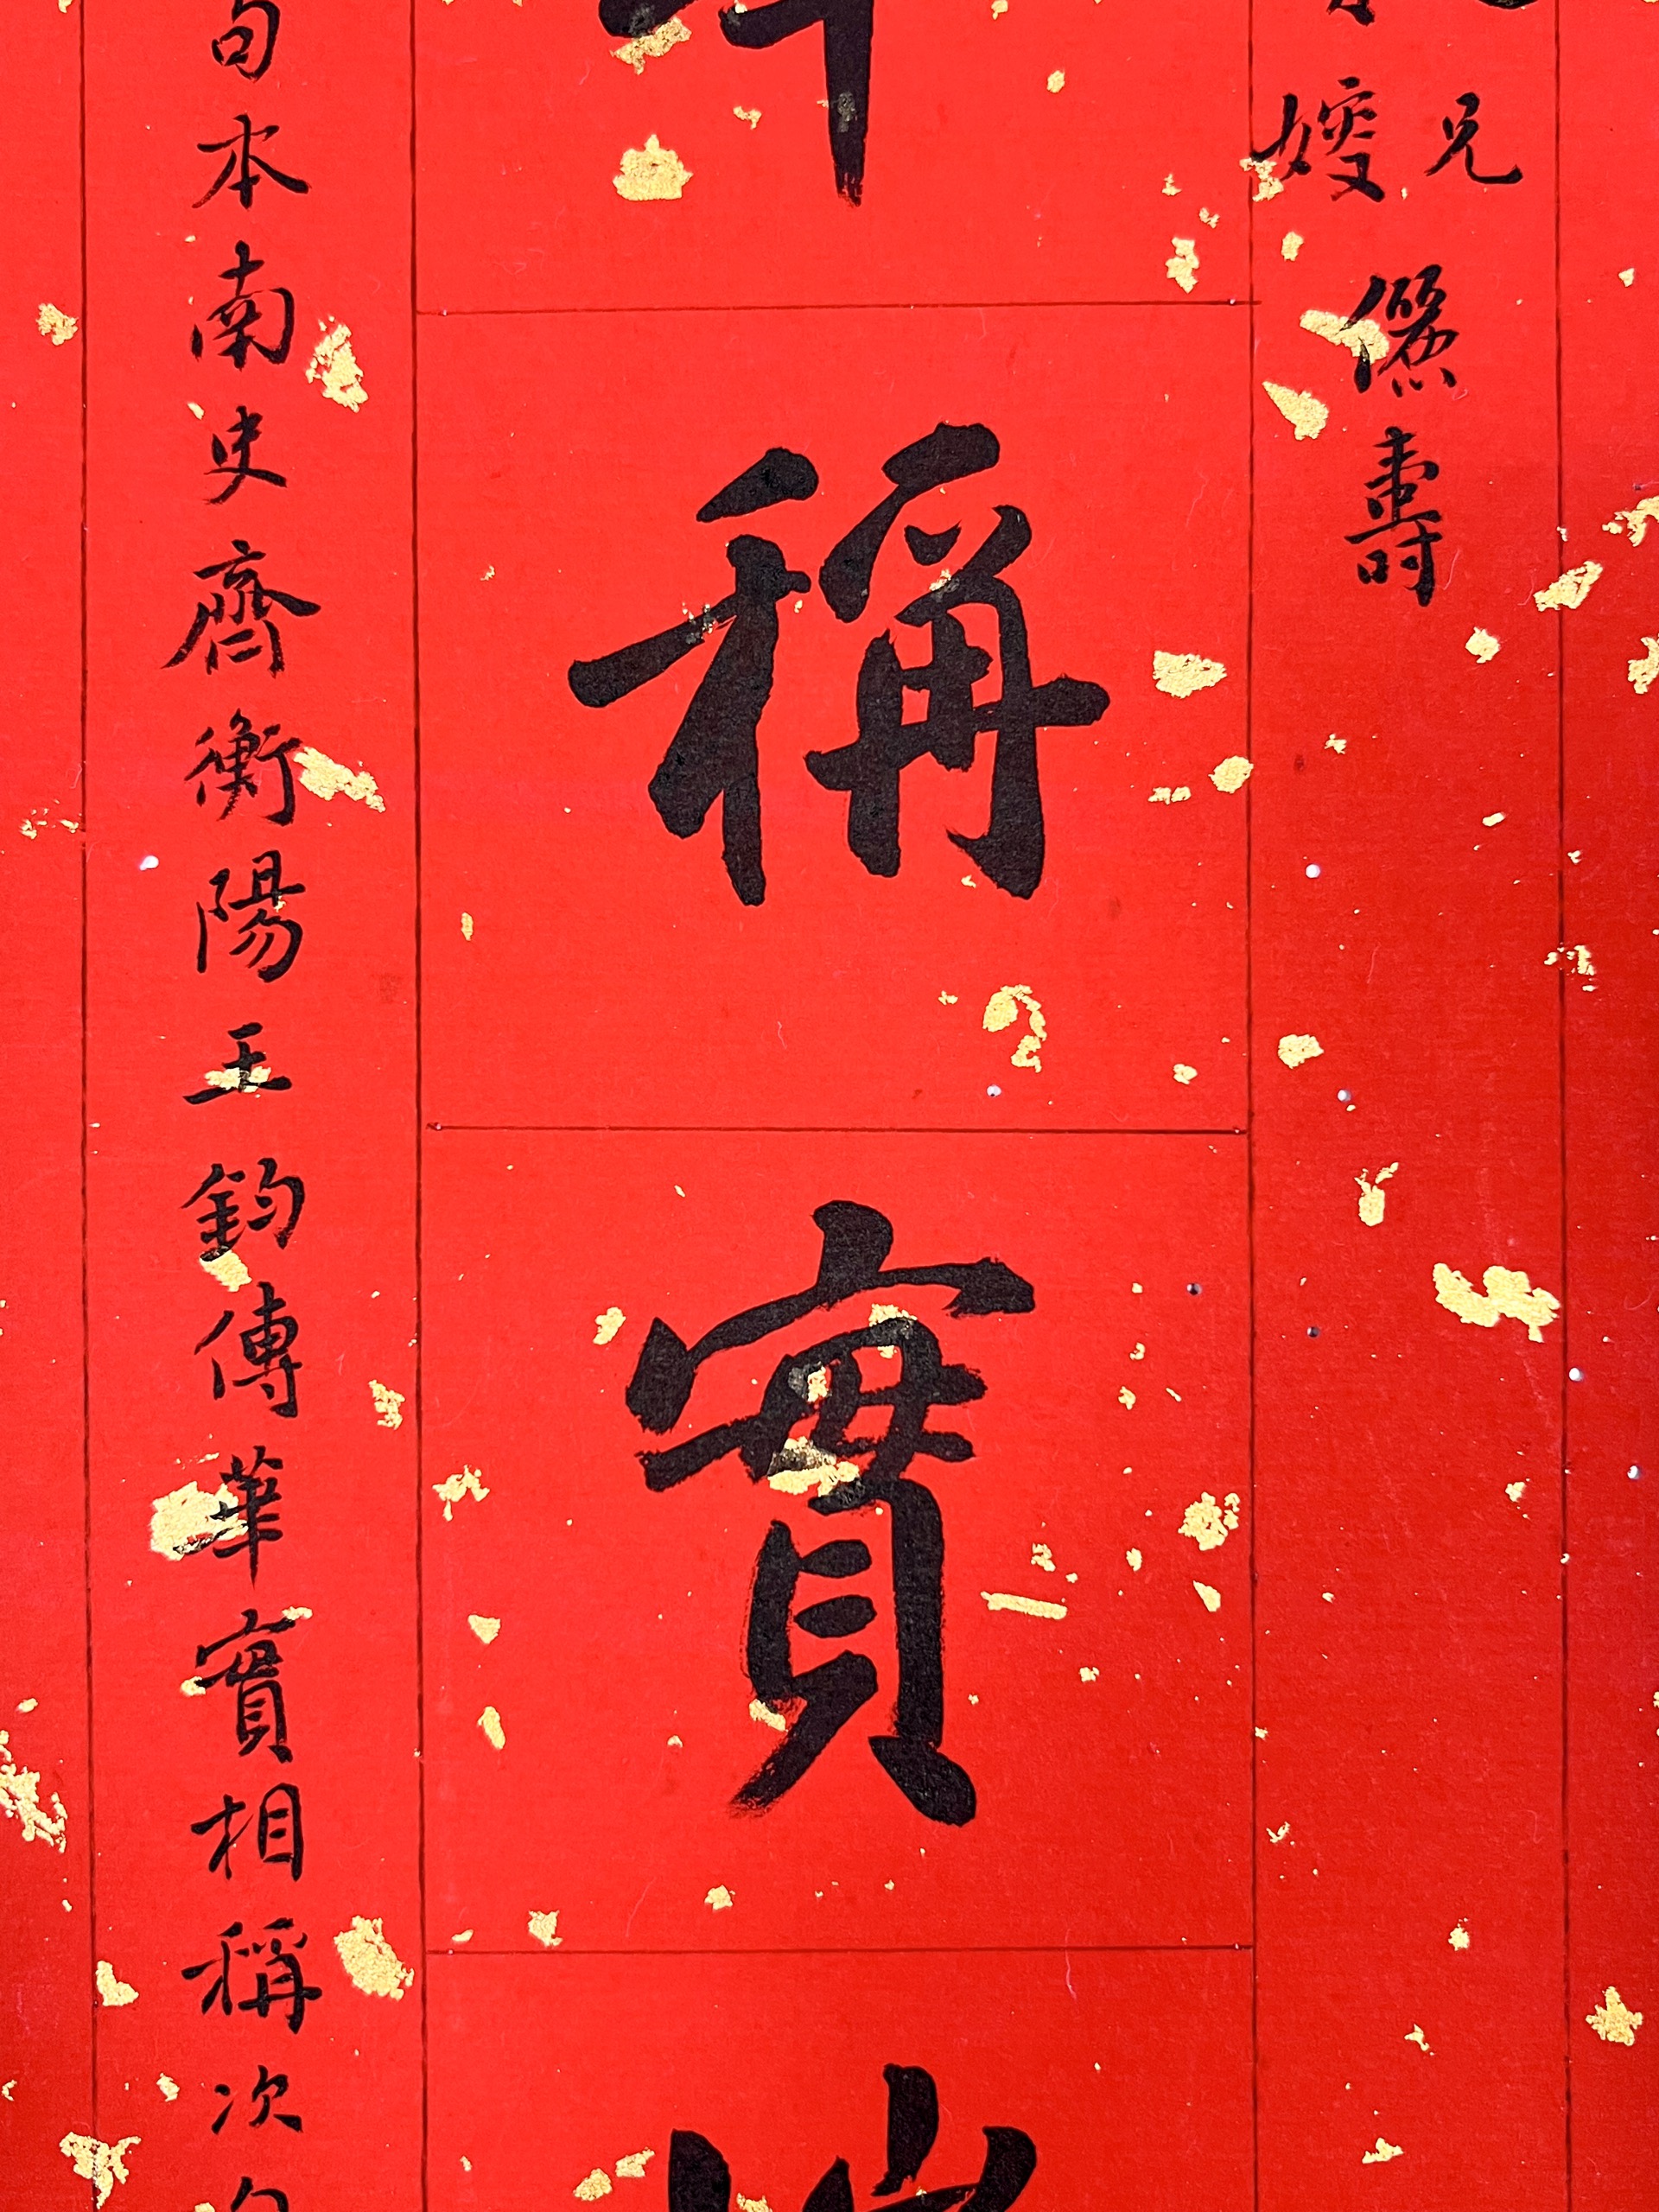 兄
嫂
儷壽
稱實
句本南史齊衡陽王鈞傳華實相稱次